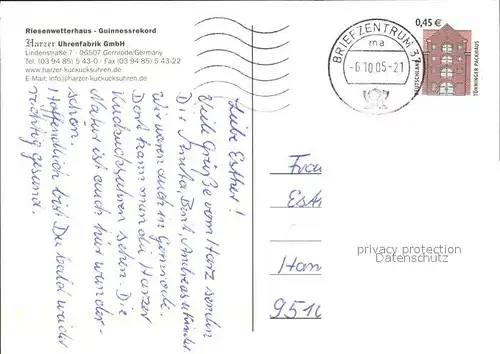 Riesenwetterhaus - Guinnessrekord
Harzer Uhrenfabrik GmbH
Lindenstraße 7 · 06507 Gernrode/Germany
Tel. (03 94 85) 5 43-0 · Fax (03 94 85) 5 43-22
www.harzer-kuckucksuhren.de
E-Mail: info@harzer-kuckucksuhren.de
Liebe Esther!
Viele Grüße vom Harz senden
Dir Anita, Bent, Andreas u. Kinder.
Wir waren auch in Gernrode.
Dort kann man die Harzer
Kuckucksuhren sehen. Die
Natur ist auch hier wunder-
schön.
Hoffentlich bist Du bald wieder
richtig gesund.
BRIEFZENTRUM 37
ma
-6.10.05-21
0,45 €
DEUTSCHLAND
TÖNNINGER PACKHAUS
Frau
Esth
Han
9510
privacy protection
Datenschutz